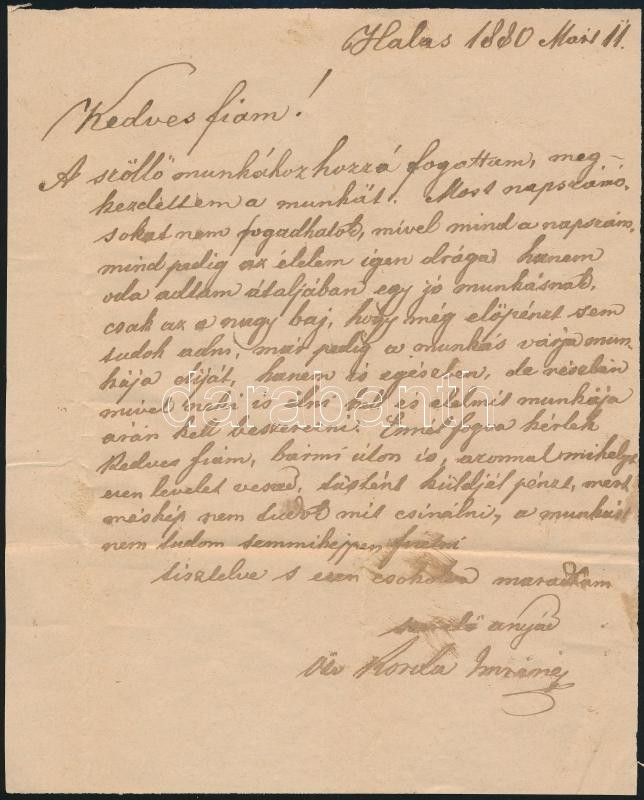 Halas 1880 Mart 11.
Kedves fiam!
A szöllő munkához hozzá fogattam, meg-
kezdettem a munkát. Most napszámo-
sokat nem fogadhatok, mivel mind a napszám,
mind pedig az élelem igen drága, hanem
oda adtam átaljában egy jó munkásnak,
csak az a nagy baj, hogy még előpénzt sem
tudok adni, már pedig a munkás várja mun-
kája díját, hanem is egészben, de részben
mivel neki is élni kell és élelmit munkája
árán kell beszerezni. Ennélfogva kérlek
Kedves fiam, bármi úton is, azonnal mihelyt
ezen levelet veszed, tüstént küldjél pénzt, mert
máskép nem tudok mit csinálni, a munkást
nem tudom semmiképpen fizetni
tisztelve s ezen csokolva maradtam
szerető anyád
Özv Korda Imréné
darabanth